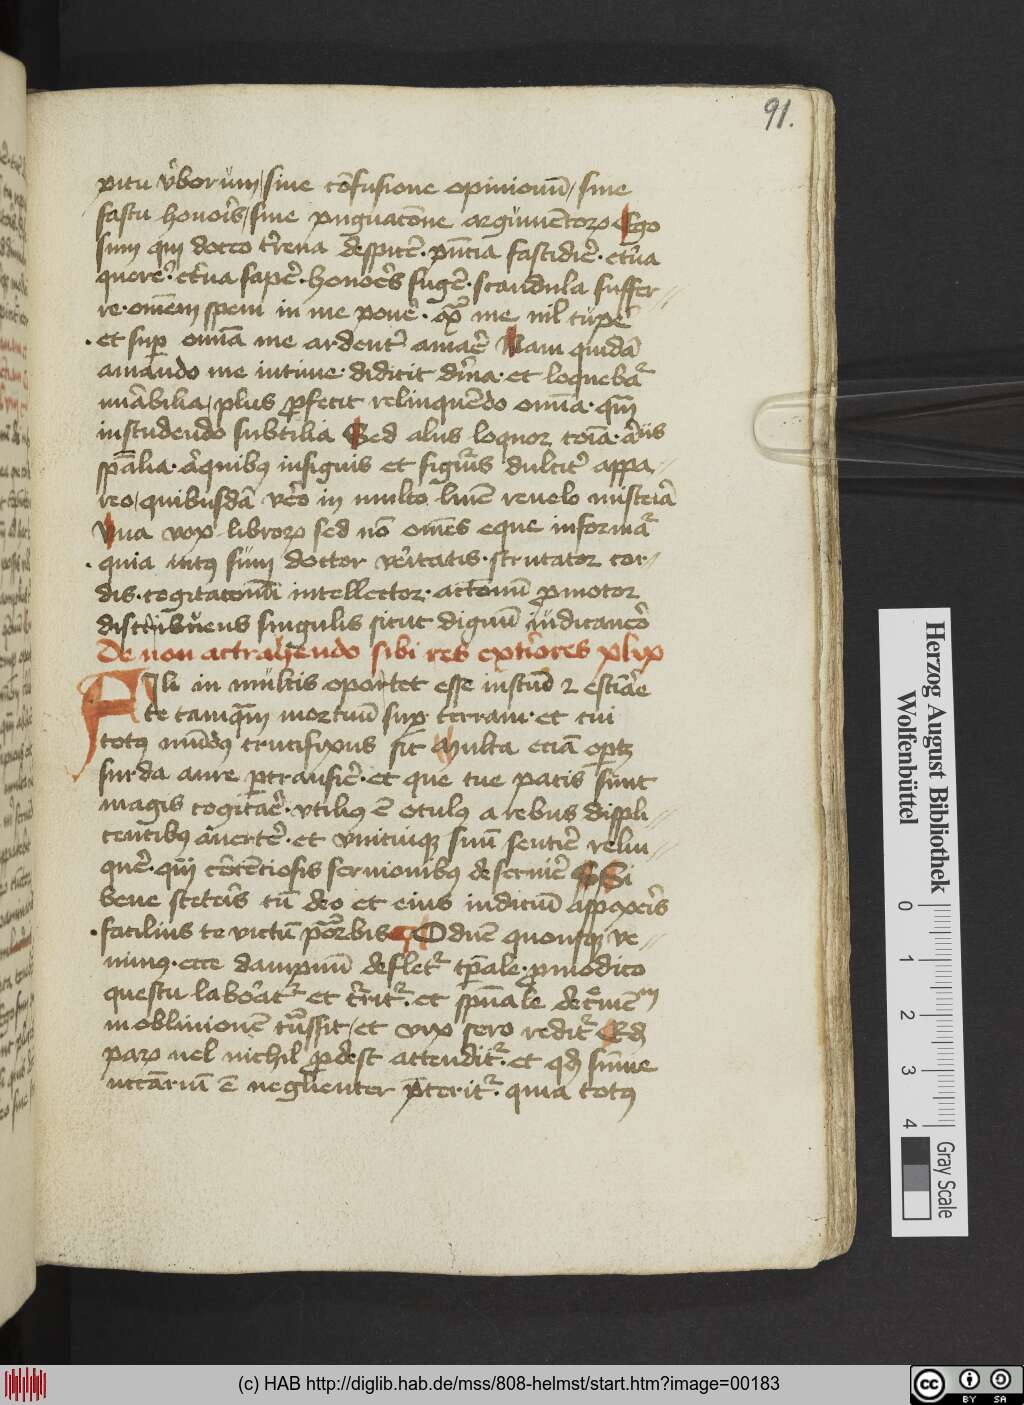 91.
pitu v̉borum / sine cōfusione opinionū / sine
fastu honor̉s / sine pugnacōne argumētoꝝ Ego
sum qui doceo t̉rena despic̉e . pn̄cia fastidic̉e . et̉na
querer̉ . et̉na saper̉ . honoēs fuger̉ . scandala suffer-
re . om̄em spem in me poner̉ . ext̃ me nil cuper̉
. et suꝑ om̄ia me ardent̉ amar̉ Nam quidā
amando me intime . didicit di̅na . et loquebat᷑
mi̅abilia / plus ꝓfecit relinquēdo om̄ia . qm̄
in studendo subtilia Sed aliis loquor coi̅a . aliis
sp̄alia . aliquibꝰ in signis et figuris dulcit̉ appa-
reo / quibusdā v̉o in multo lumīe reuelo mister̉ia
Vna vox libroꝝ sed nō om̄es eque informat᷑
. quia intꝰ sum doctor v̉itatis . scrutator cor-
dis . cogitaconū intellector . actionū ꝓmotor
distribuens singulis sicut dignū iudicauero̅
De non attrahendo sibi res ext̉iores xlix
Fili in multis oportet esse insciū ⁊ estiaē
te tamqm̄ mortuū suꝑ terram . et cui
totꝰ mūdꝰ crucifixus sit Multa eciā optꝫ
surda aure ꝑtransir̉ . et que tue pacis sunt
magis cogitar̉ . vtiliꝰ ē oculos a rebus displi-
centibꝰ auerter̉ . et vnicuiqꝫ suū sentir̉ relin-
quer̉ . qm̄ cōtēciosis sermonibꝰ deseruir̉ Si
bene steter̉is cū deo et eius iudiciū aspexer̉is
. faciliꝰ te victū portabis O dn̄e quousqꝫ ve-
nimꝰ . ecce dampnū deflet᷑ tp̄ale . ꝓ modico
questu laborat᷑ et curit᷑ . et spūale detrimētm̄
in obliuionē transsit / et vix sero redit᷑ Qd̄
paꝝ uel nichil ꝓdest attendit᷑ . et qd̄ sūme
necc̄ariū ē negligenter pt̄erit᷑ . quia totꝰ
Herzog August Bibliothek
Wolfenbüttel
0 1 2 3 4
Gray Scale
(c) HAB http://diglib.hab.de/mss/808-helmst/start.htm?image=00183
cc BY SA